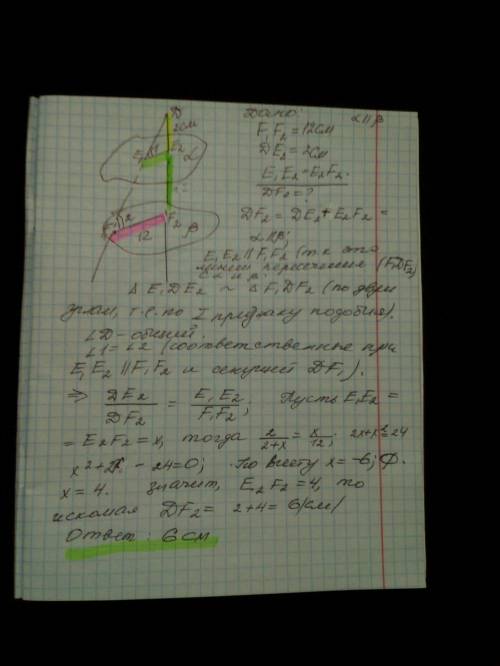 D
2см
E₁ 1 E₂ α
F₁ 2 F₂
12 β
Дано: α || β
F₁F₂ = 12см
DE₂ = 2см
E₁E₂ = E₂F₂.
DF₂ = ?
DF₂ = DE₂ + E₂F₂ =
α || β;
E₁E₂ || F₁F₂ (т.к это
линии пересечения (F₁DF₂)
Δ E₁DE₂ ~ Δ F₁DF₂ (по двум
углам, т.е. по I признаку подобия).
∠D - общий
∠1 = ∠2 (соответственные при
E₁E₂ || F₁F₂ и секущей DF₁).
⇒ DE₂/DF₂ = E₁E₂/F₁F₂; Пусть E₁E₂ =
= E₂F₂ = x, тогда 2/(2+x) = x/12; 2x+x²=24
x² + 2x - 24 = 0; По Виету x = -6; ∅.
x = 4. значит, E₂F₂ = 4, то
искомая DF₂ = 2+4 = 6(см)
Ответ: 6 см